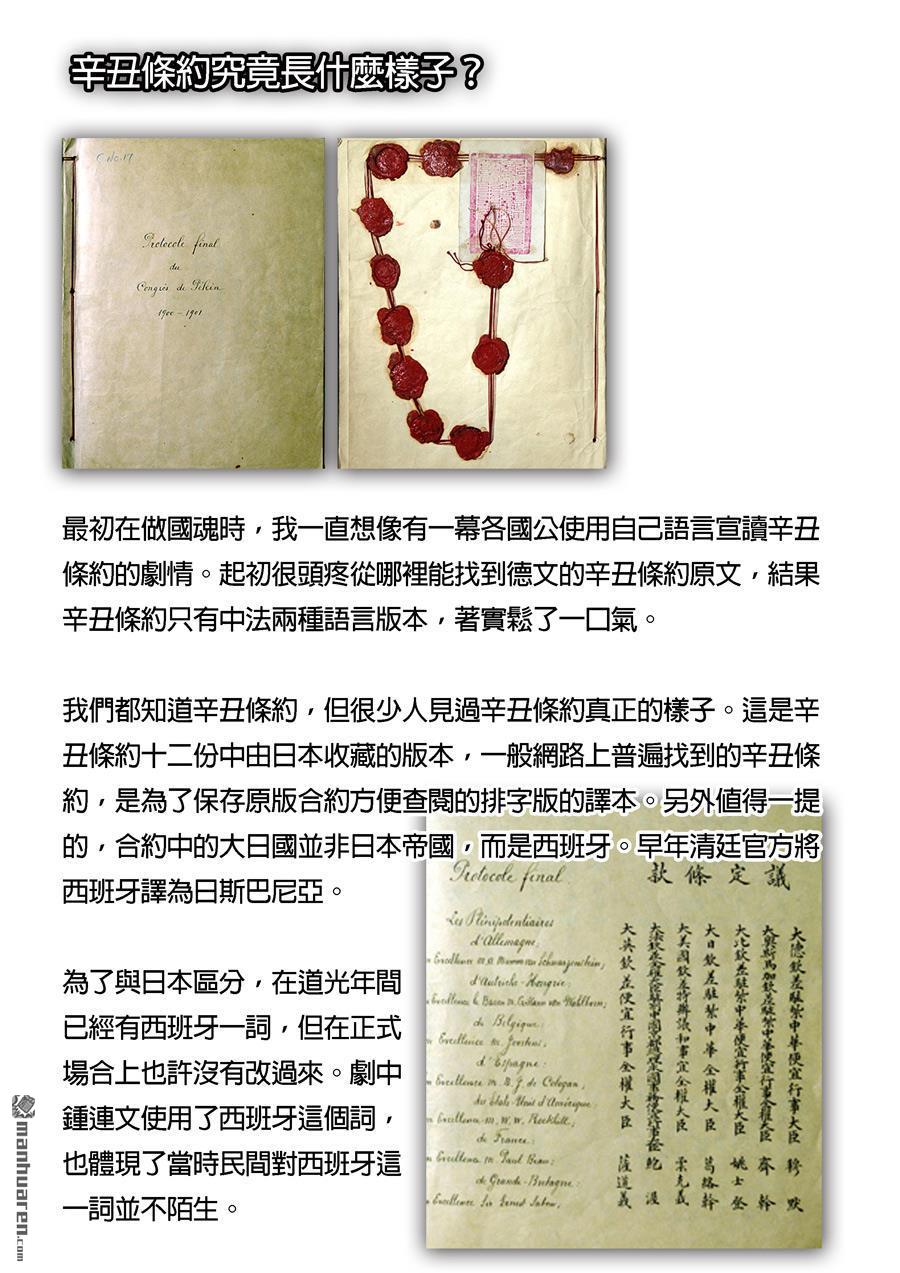 辛丑條約究竟長什麼樣子？
C No. 17
Protocole final
du
Congrès de Pékin
1900 - 1901
最初在做國魂時，我一直想像有一幕各國公使用自己語言宣讀辛丑
條約的劇情。起初很頭疼從哪裡能找到德文的辛丑條約原文，結果
辛丑條約只有中法兩種語言版本，著實鬆了一口氣。
我們都知道辛丑條約，但很少人見過辛丑條約真正的樣子。這是辛
丑條約十二份中由日本收藏的版本，一般網路上普遍找到的辛丑條
約，是為了保存原版合約方便查閱的排字版的譯本。另外值得一提
的，合約中的大日國並非日本帝國，而是西班牙。早年清廷官方將
西班牙譯為日斯巴尼亞。
為了與日本區分，在道光年間
已經有西班牙一詞，但在正式
場合上也許沒有改過來。劇中
鍾連文使用了西班牙這個詞，
也體現了當時民間對西班牙這
一詞並不陌生。
Protocole final
Les Plénipotentiaires
d'Allemagne,
Excellence M. A. Mumm von Schwarzenstein;
d'Autriche-Hongrie:
Excellence le Baron M. Czikann von Wahlborn;
de Belgique:
Excellence M. Joostens;
d'Espagne:
Excellence M. B. J. de Cologan;
des États-Unis d'Amérique:
Excellence M. W. W. Rockhill;
de France:
Excellence M. Paul Beau;
de Grande-Bretagne:
Excellence Sir Ernest Satow,
議定條款
大德欽差駐紮中華便宜行事大臣 穆 默
大奧斯馬加欽差駐紮中華便宜行事全權大臣 齊 幹
大比欽差駐紮中華便宜行事全權大臣 姚士登
大日欽差駐紮中華全權大臣 葛絡幹
大美國欽差特辦議和事宜全權大臣 柔克義
大英欽差便宜行事全權大臣 薩道義
manhuaren.com